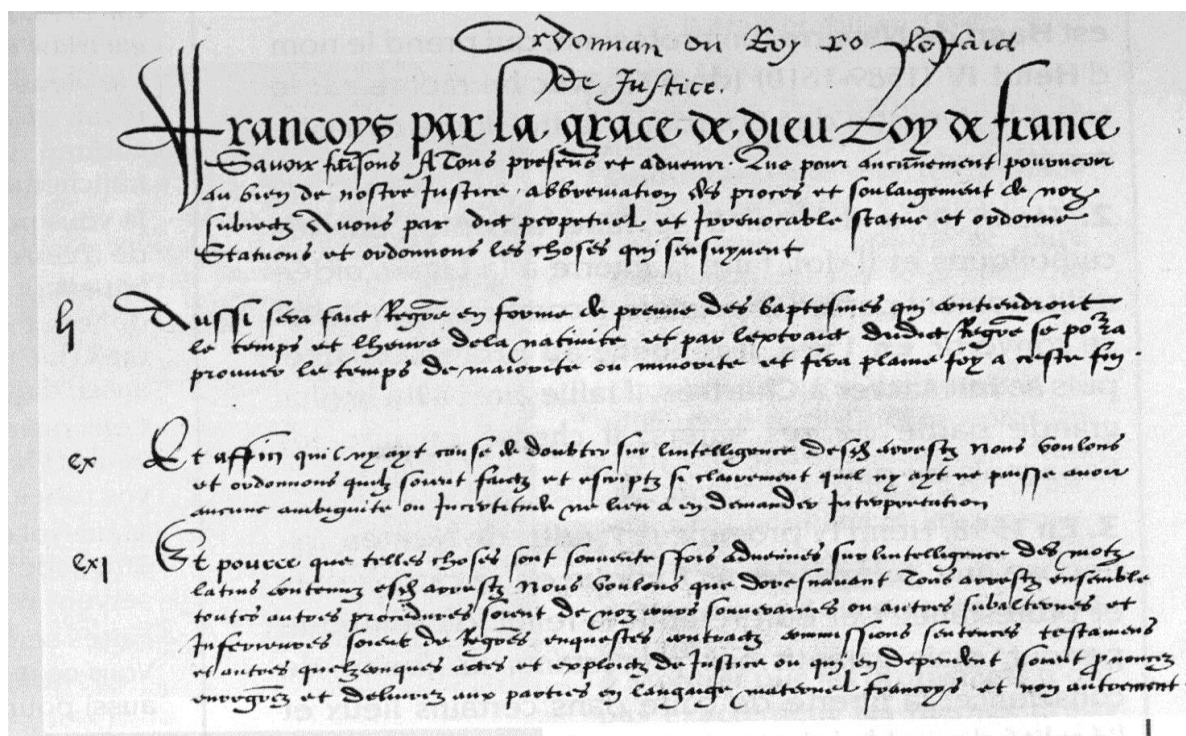 Ordonnan du Roy
De Justice.
Francoys par la grace de dieu Roy de france
Savoir faisons A Tous presens et advenir. Que pour aucunnement pourveoir
au bien de nostre Justice. abbreviation des proces et soulaigement de noz
subiectz Avons par dict perpetuel et Irrevocable statue et ordonne
Statuons et ordonnons les choses qui sensuyvent
lj Aussi sera faict Regre en forme de preuve des baptesmes qui contiendront
le temps et lheure dela nativite et par lextraict dudict Regre se porra
prouver le temps de maiorite ou minorite et fera plaine foy a ceste fin.
cx Et affin quil ny ayt cause de doubter sur lintelligence desd arrestz Nous voulons
et ordonnons quilz soient faictz et escriptz si clairement quil ny ayt ne puisse avoir
aucune ambiguite ou Incertitude ne lieu a en demander Interpretation
cxj Et pource que telles choses sont souventesfois advenues sur lintelligence des motz
latins contenuz esd arrestz Nous voulons que doresnavant Tous arrestz ensemble
toutes autres procedures soient de noz cours souveraines ou autres subalternes et
Inferieures soient de Regres enquestes contractz commissions sentences testamens
et autres quelzconques actes et exploictz de Justice ou qui en dependent soient pnoncez
enregrez et delivrez aux parties en langaige maternel francoys et non autrement.